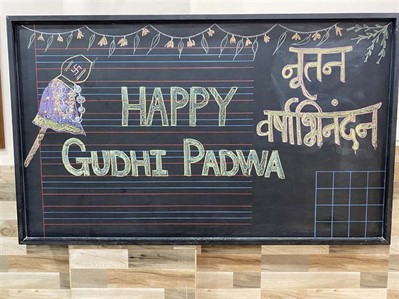 HAPPY
GUDHI PADWA
नूतन
वर्षाभिनंदन